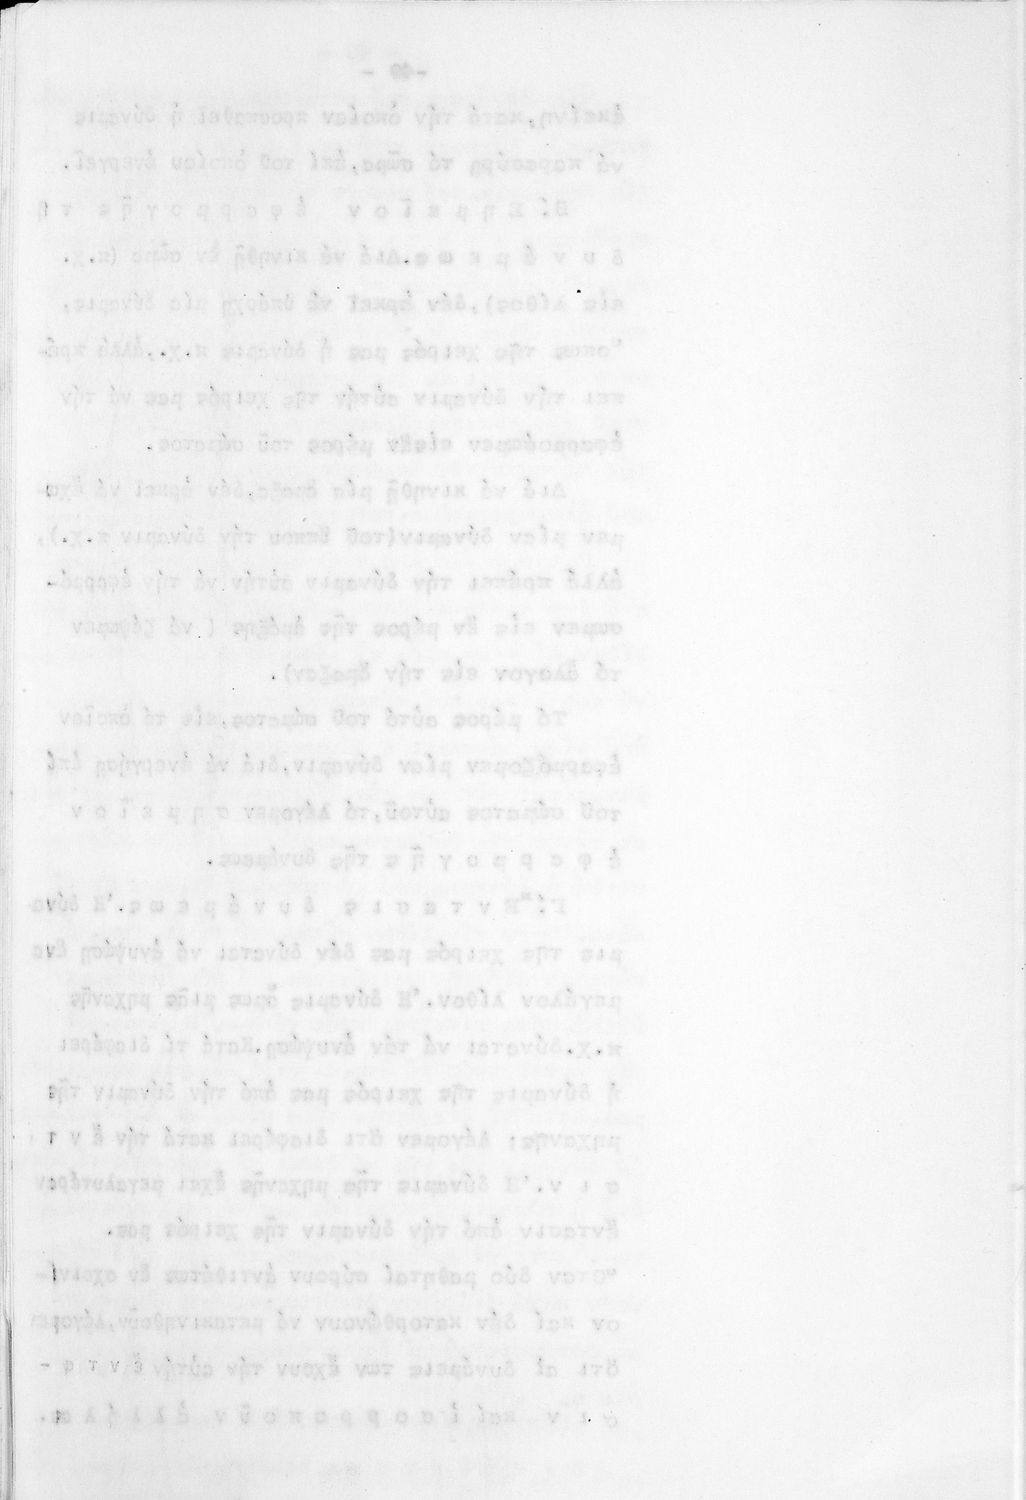 - 40 -
ἐκείνη,κατά τήν ὁποίαν προσπαθεῖ ἡ δύναμις
νά παρασύρῃ τό σῶμα,ἐπί τοῦ ὁποίου ἐνεργεῖ.
Β! Σ η μ ε ῖ ο ν ἐ φ α ρ μ ο γ ῆ ς τ ῆ
δ υ ν ά μ ε ω ς.Διά νά κινηθῇ ἕν σῶμα (π.χ.
εἷς λίθος),δέν ἀρκεῖ νά ὑπάρχῃ μία δύναμις,
Ὅπως τῆς χειρός μας ἡ δύναμις π.χ.,ἀλλά πρέ-
πει τήν δύναμιν αὐτήν τῆς χειρός μας νά τήν
ἐφαρμόσωμεν εἰς ἕν μέρος τοῦ σώματος.
Διά νά κινηθῇ μία ἅμαξα,δέν ἀρκεῖ νά ἔχω-
μεν μίαν δύναμιν(τοῦ ἵππου τήν δύναμιν π.χ.),
ἀλλά πρέπει τήν δύναμιν αὐτήν νά τήν ἐφαρμό-
σωμεν εἰς ἕν μέρος τῆς ἁμάξης ( νά ζέψωμεν
τό ἄλογον εἰς τήν ἅμαξαν).
Τό μέρος αὐτό τοῦ σώματος,εἰς τό ὁποῖον
ἐφαρμόζομεν μίαν δύναμιν,διά νά ἐνεργήσῃ ἐπί
τοῦ σώματος αὐτοῦ,τό λέγομεν σ η μ ε ῖ ο ν
ἐ φ α ρ μ ο γ ῆ ς τῆς δυνάμεως.
Γ! Ἔ ν τ α σ ι ς δ υ ν ά μ ε ω ς.Ἡ δύνα-
μις τῆς χειρός μας δέν δύναται νά ἀνυψώσῃ ἕνα
μεγάλον λίθον.Ἡ δύναμις ὅμως μιᾶς μηχανῆς
π.χ.δύναται νά τόν ἀνυψώσῃ.Κατά τί διαφέρει
ἡ δύναμις τῆς χειρός μας ἀπό τήν δύναμιν τῆς
μηχανῆς; Λέγομεν ὅτι διαφέρει κατά τήν ἔ ν τ
σ ι ν.Ἡ δύναμις τῆς μηχανῆς ἔχει μεγαλυτέραν
ἔντασιν ἀπό τήν δύναμιν τῆς χειρός μας.
Ὅταν δύο μαθηταί σύρουν ἀντιθέτως ἕν σχοινί-
ον καί δέν κατορθώνουν νά μετακινηθοῦν,λέγομεν
ὅτι αἱ δυνάμεις των ἔχουν τήν αὐτήν ἔ ν τ α -
σ ι ν καί ἰ σ ο ρ ρ ο π ο ῦ ν ἀ λ λ ή λ α ς.